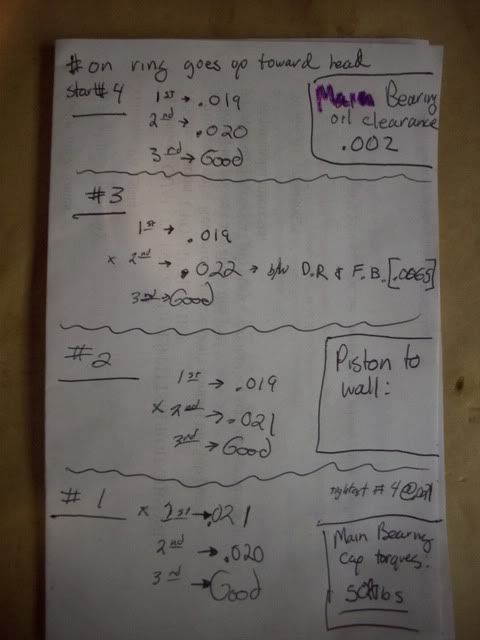 # on ring goes up toward head
start# 4
1st → .019
2nd → .020
3rd → Good
Main Bearing
oil clearance
.002
#3
1st → .019
x 2nd → .022 → b/w D.R & F.B. [.0065]
3rd → Good
#2
1st → .019
x 2nd → .021
3rd → Good
Piston to
wall:
#1
x 1st → .021
2nd → .020
3rd → Good
tightest # 4 @
Main Bearing
Cap torques:
50 lbs